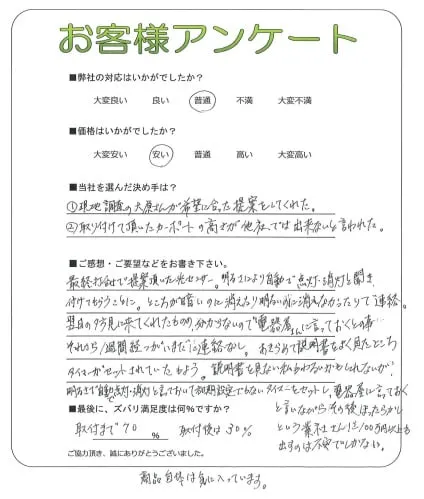 お客様アンケート
■弊社の対応はいかがでしたか?
大変良い 良い 普通 不満 大変不満
■価格はいかがでしたか?
大変安い 安い 普通 高い 大変高い
■当社を選んだ決め手は?
①現地調査の大原さんが希望に合った提案をしてくれた。
②取り付けて頂いたカーポートの高さが他社では出来ないと言われた。
■ご感想・ご要望などをお書き下さい。
最終打合せで提案頂いた光センサー。明るさにより自動で点灯・消灯と聞き、
付けてもらうことに。ところが暗いのに消えたり明るいのに消えなかったりで連絡。
翌日の夕方見に来てくれたものの、分からないので"電器屋さんに言っておくとの事…
それから1週間経つがいまだに連絡なし。あきらめて説明書をよく見たところ
タイマーがセットされていたもよう。説明書を見ない私もわるいかもしれないが、
明るさで自動点灯・消灯と言っておいて初期設定でもないタイマーをセットし、電器屋に言っておく
と言いながらその後ほったらかし
という業社さんに100万円以上も
出すのは不安でしかない。
■最後に、ズバリ満足度は何%ですか?
取付まで70 % 取付後は30%
ご協力頂き、誠にありがとうございました。
商品自体は気に入っています。